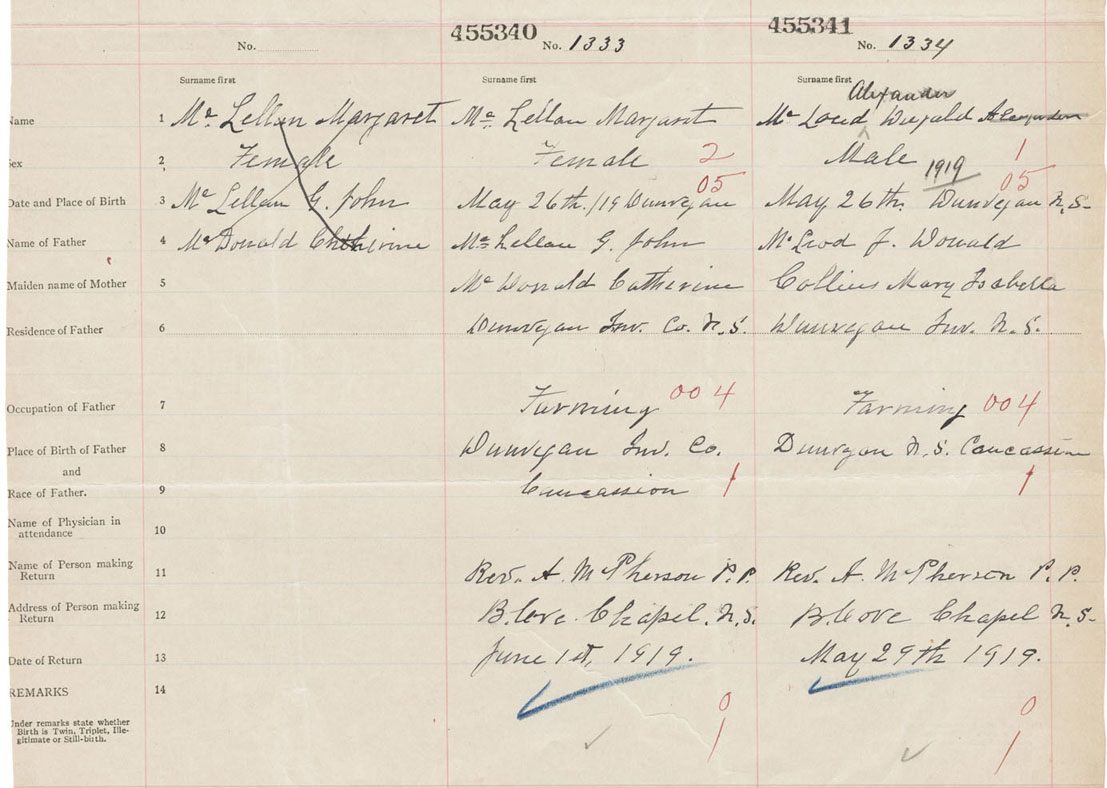 455340 455341
No. No. 1333 No. 1334
Surname first Surname first Surname first
Alexander
Name 1 Mc Lellan Margaret Mc Lellan Margaret Mc Loud Donald Alexander
Sex 2 Female Female 2 Male 1
1919
05 05
Date and Place of Birth 3 Mc Lellan G. John May 26th/19 Dunvegan May 26th. Dunvegan N.S.
Name of Father 4 Mc Donald Catherine Mc Lellan G. John Mc Leod J. Donald
Maiden name of Mother 5 Mc Donald Catherine Collins Mary Isabella
Residence of Father 6 Dunvegan Inv. Co. N.S. Dunvegan Inv. N.S.
Occupation of Father 7 Farming 004 Farming 004
Place of Birth of Father 8 Dunvegan Inv. Co. Dunvegan N.S. Caucassion
and
Race of Father. 9 Concassion 1 1
Name of Physician in
attendance 10
Name of Person making
Return 11 Rev. A. McPherson P.P. Rev. A. McPherson P.P.
Address of Person making
Return 12 B. Cove Chapel. N.S. B. Cove Chapel N.S.
Date of Return 13 June 1st, 1919. May 29th 1919.
REMARKS 14
Under remarks state whether
Birth is Twin, Triplet, Ille-
gitimate or Still-birth.
0 0
1 1